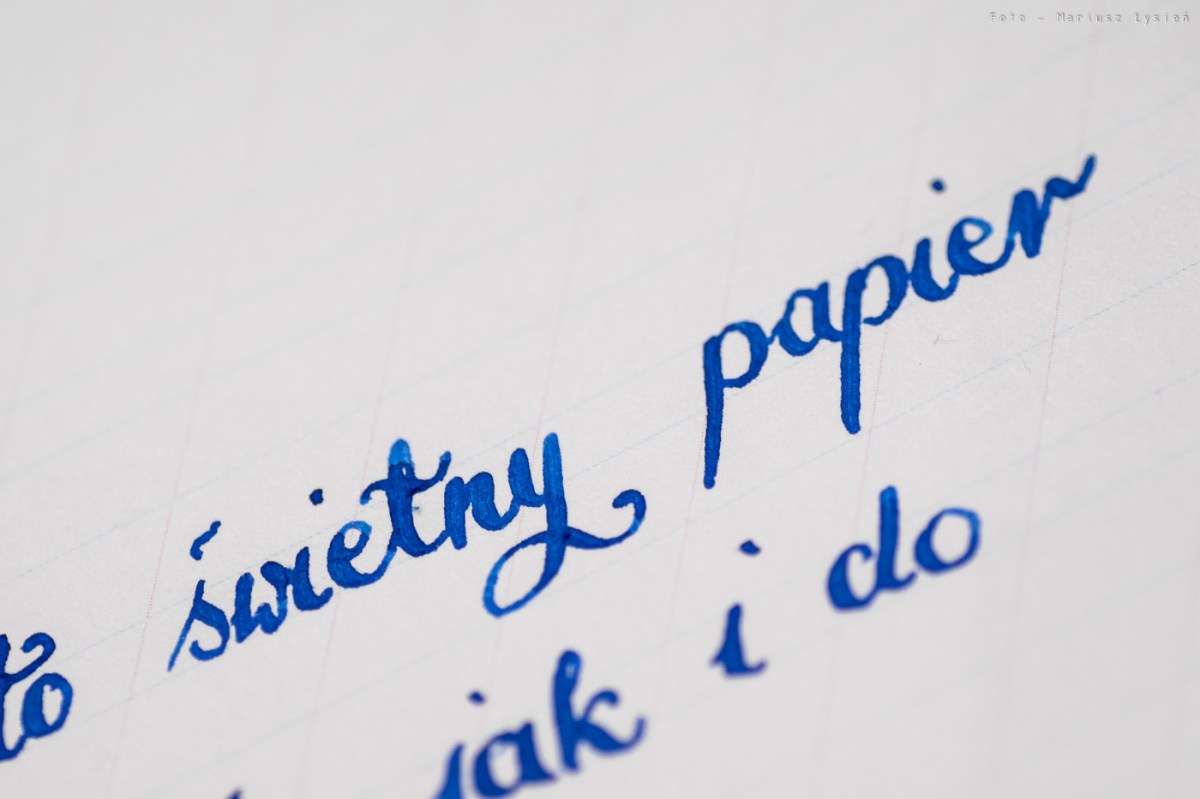 Foto - Mariusz Łysień
to świetny papier
jak i do